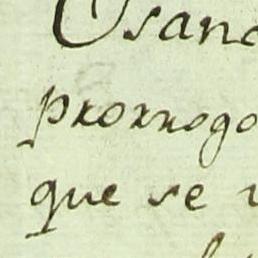 Usan
prorrogo
que se